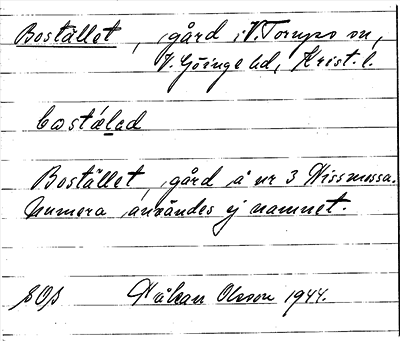 Bostället, gård i V. Torups sn,
V. Göinge hd, Krist. l.
bostället, gård å nr 3 Nissmossa.
Numera användes ej namnet.
Håkan Olsson 1944.